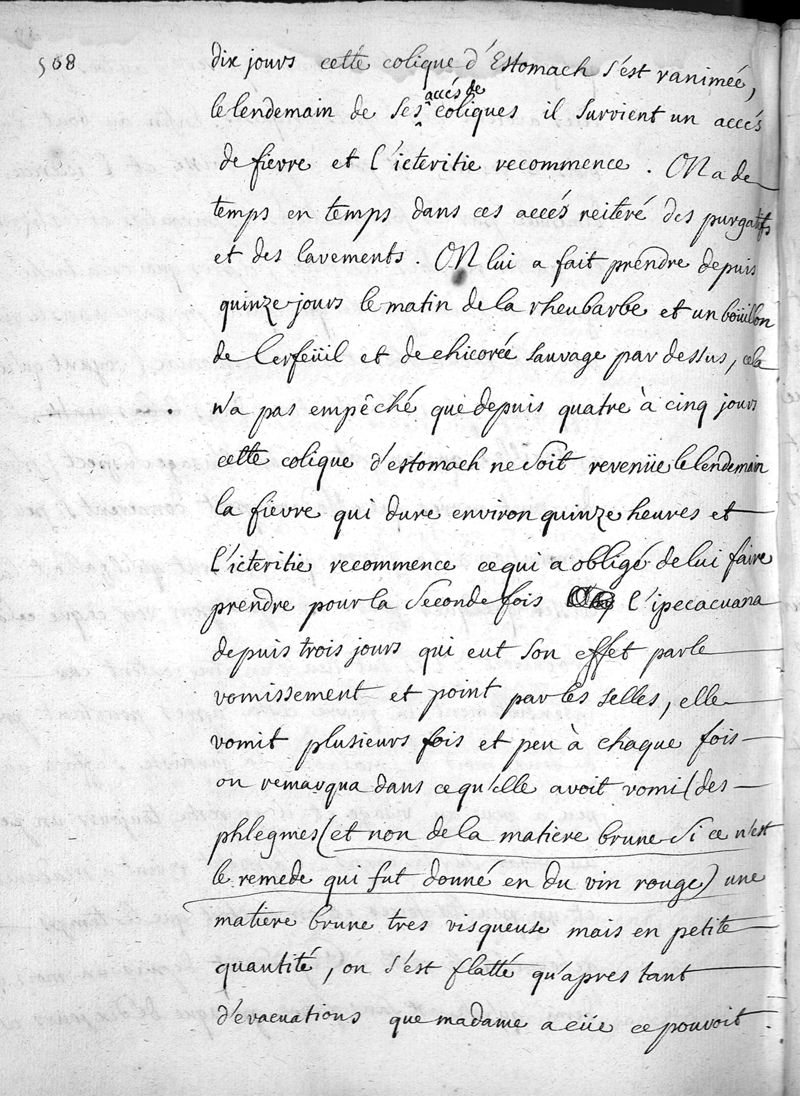 508
dix jours cette colique d'Estomach s'est ranimée,
accés de
le lendemain de ses coliques il survient un accés
de fievre et l'icteritie recommence. On a de
temps en temps dans ces accés reiteré des purgatifs
et des lavements. On lui a fait prendre depuis
quinze jours le matin de la rheubarbe et un boüillon
de Cerfeüil et de chicorée sauvage par dessus, cela
n'a pas empêché que depuis quatre à cinq jours
cette colique d'estomach ne soit revenüe le lendemain
la fievre qui dure environ quinze heures et
l'icteritie recommence ce qui a obligé de lui faire
prendre pour la seconde fois l'ipecacuana
depuis trois jours qui eut son effet par le
vomissement et point par les selles, elle
vomit plusieurs fois et peu à chaque fois
on remarqua dans ce qu'elle avoit vomi (des
phlegmes (et non de la matiere brune si ce n'est
le remede qui fut donné en du vin rouge) une
matiere brune tres visqueuse mais en petite
quantité, on s'est flatté qu'apres tant
d'evacuations que madame a eüe ce pouvoit